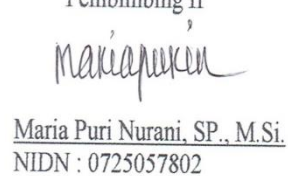 Pembimbing II
Maria Puri Nurani, SP., M.Si.
NIDN : 0725057802